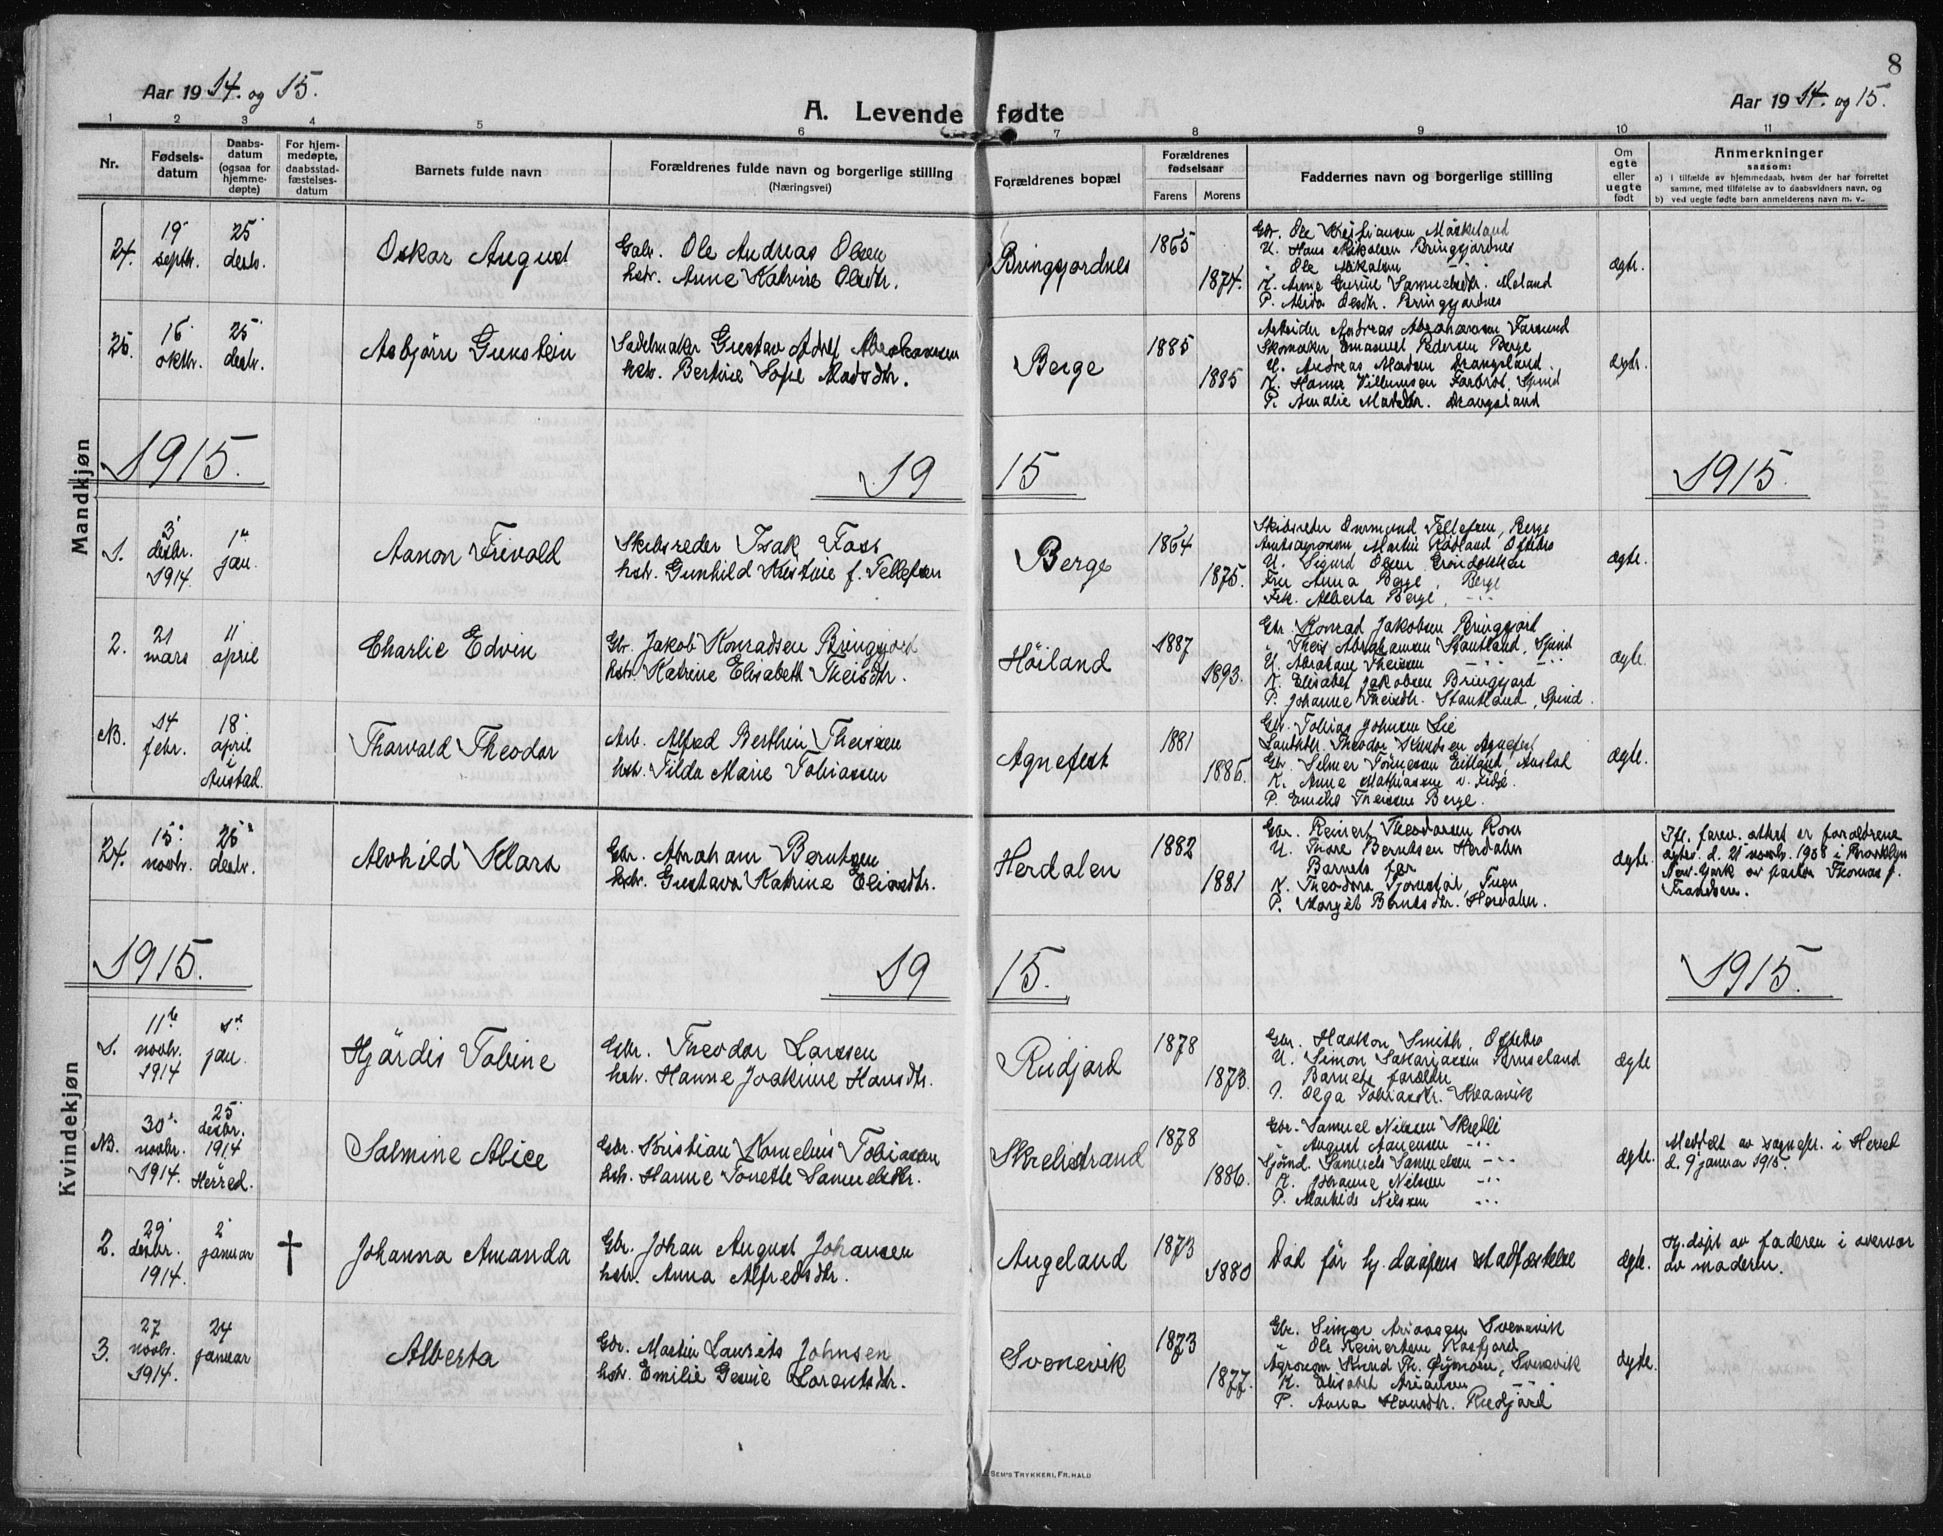 8
Aar 1914. og 15.
A. Levende fødte
Aar 1914. og 15.
1 2 3 4 5 6 7 8 9 10 11
Nr.
Fødsels-
datum
Daabs-
datum
(ogsaa for
hjemme-
døpte)
For hjem-
medøpte,
daabsstad-
fæstelses-
datum
Barnets fulde navn
Forældrenes fulde navn og borgerlige stilling
(Næringsvei)
Forældrenes bopæl
Forældrenes
fødselsaar
Farens Morens
Faddernes navn og borgerlige stilling
Om
egte
eller
uegte
født
Anmerkninger
saasom:
a) i tilfælde av hjemmedaab, hvem der har forrettet
samme, med tilføielse av to daabsvidners navn, og
b) ved uegte fødte barn anmelderens navn m. v..
Mandkjøn
24.
19
septbr.
25
desbr.
Oskar August
Gbr. Ole Andreas Olsen
hstr. Anne Katrine Olsdtr.
Bringsjordnes
1865
1874.
Gbr. Ole Kristiansen
U. Hans Mikalsen Bringsjordnes
Ole Mikalsen
K. Anne Gurine Samuelsdtr.
P. Alida Olsdtr. Bringsjordnes
ægte.
25.
16
oktbr.
25
desbr.
Asbjørn Gunstein
Sadelmaker Gustav Adolf Abrahamsen
hstr. Bertine Sofie Madsdtr.
Berge
1885
1885
Arbeider Andreas Abrahamsen Farsund
Skomaker Emanuel Pedersen Berge
U. Andreas Madsen Drangsland.
K. Hanna Villumsen Farbrot, Spind
P. Amalie Madsdtr. Drangsland
ægte.
1915. 1915 1915.
1.
3
desbr.
1914.
1ste
jan.
Aanon Trivald
Skibsreder Isak Foss
hstr. Gunhild Kristine f. Tellefsen
Berge
1864
1875.
Skibsreder Tellefsen, Berge
Amtsagronom Martin Rødland, Oftebro
U. Sigurd Olsen
Fru Anna Berge, Berge
Frk. Alberta Berge,
ægte.
2.
21
mars
11
april
Charlie Edvin
Gbr. Jakob Konradsen Bringsjord
hstr. Katrine Elisabeth Theisdtr.
Høiland
1887
1893.
Gbr. Konrad Jakobsen Bringsjord
Theis Abrahamsen Stautland, Spind
U. Abraham Theissen
K. Elisabet Jakobsen Bringsjord
P. Johanne Theisdtr. Stautland, Spind.
ægte.
NB.
14
febr.
18
april
i
Austad.
Thorvald Theodor
Arb. Alfred Berthin Theissen
hstr. Tilda Marie Tobiassen
Agnefest
1881
1885.
Gbr. Tobias Johnsen Lie
Theodor Knudsen Agnefest
Gbr. Selmer Tønnessen Eitland, Austad
K. Anna Mathiassen
P. Emilie Theissen Berge.
ægte.
Kvindekjøn
24.
15
novbr.
26
desbr.
Alvhild Klara
Gbr. Abraham Berntsen
hstr. Gustava Katrine Eliasdtr.
Herdalen
1882
1881
Gbr. Reinert Theodorsen Rom
U. Thore Berntsen Herdalen
Barnets far
K. Theodora
P. Margit Berntsdtr. Herdalen.
ægte.
Ifl. forev. attest er forældrene
ægtev. d. 21 novbr. 1908 i Brooklyn
New York av pastor Thomas J.
Frandsen.
1915. 1915. 1915.
1.
11te
novbr.
1914
1ste
jan.
Hjördis Tobine
Gbr. Theodor Larssen
hstr. Hanne Joakime Hansdtr.
Rudjord
1878
1873.
Gbr. Haakon Smith, Oftebro
U. Simon Sakariassen Bruseland
Barnets forældre
P. Olga Tobiasdtr. Kraavik
ægte
NB.
30
novbr.
1914.
25
desbr.
1914
Herred.
Salmine Alice
Gbr. Kristian Kornelius Tobiassen
hstr. Hanne Tonette Samuelsdtr.
Skrelistrand
1878
1886.
Gbr. Samuel Nilssen Skrelli
August Aanensen
Sjømd. Samuel Samuelsen
K. Johanne Nilsen
P. Mathilde Nilssen
ægte.
Meddelt av sognepr. i Herred
d. 9 januar 1915.
2.
29
desbr.
1914.
2
januar
†
Johanna Amanda
Gbr. Johan August Johansen
hstr. Anna Alfredsdtr.
Augeland
1873
1880
Død før hj. daapens stadfæstelse
ægte.
Hj. døpt av faderen i overvær
av moderen.
3.
27
novbr.
1914.
24
januar
Alberta
Gbr. Martin Laurits Johnsen
hstr. Emilie Gesine Lorentsdtr.
Svenevik
1873
1877.
Gbr. Simon Ariansen Svenevik
Ole Reinertsen Rosfjord
Agronom Knud Th. Øymoen, Svenevik
K. Elisabet Ariansen
P. Anna Hansdtr. Rudjord
ægte.
SEM'S TRYKKERI, FR. HALD